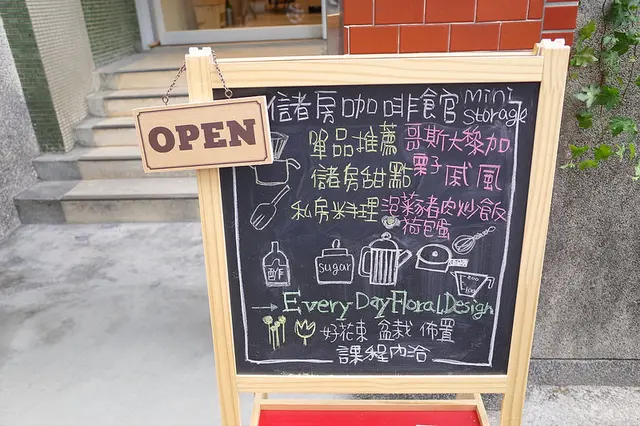 OPEN
儲房咖啡館 mini storage
單品推薦 哥斯大黎加
儲房甜點 栗子戚風
私房料理 泡菜豬肉炒飯
荷包蛋
酢
sugar
Every Day Floral Design
好花束 盆栽 佈置
課程內洽